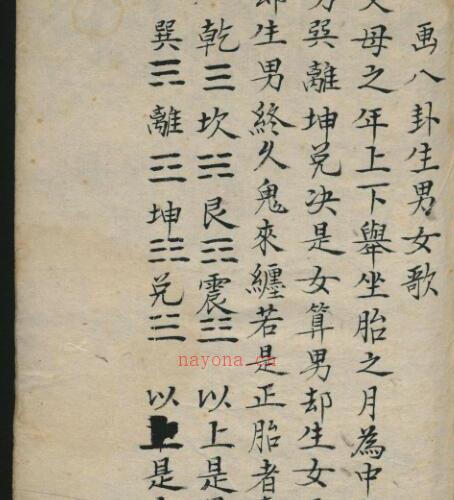 画八卦生男女歌
父母之年上下舉坐胎之月為中
巽離坤兑决是女算男却生女
却生男終久鬼來纏若是正胎者
乾☰坎☵艮☶震☳以上是
巽☴離☲坤☷兑☱以上是
nayona.cn